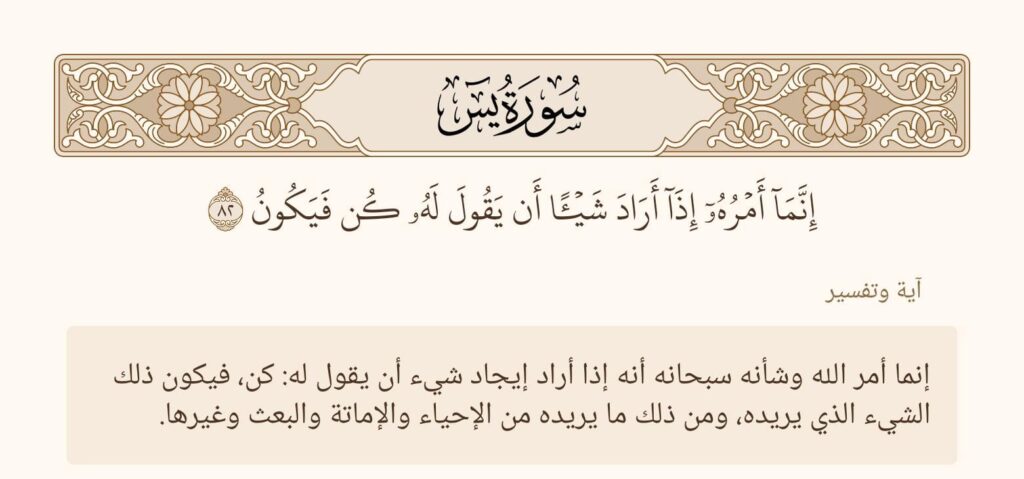 سُورَةُ يسٓ
إِنَّمَآ أَمْرُهُۥٓ إِذَآ أَرَادَ شَيْـًٔا أَن يَقُولَ لَهُۥ كُن فَيَكُونُ ٨٢
آية وتفسير
إنما أمر الله وشأنه سبحانه أنه إذا أراد إيجاد شيء أن يقول له: كن، فيكون ذلك
الشيء الذي يريده، ومن ذلك ما يريده من الإحياء والإماتة والبعث وغيرها.